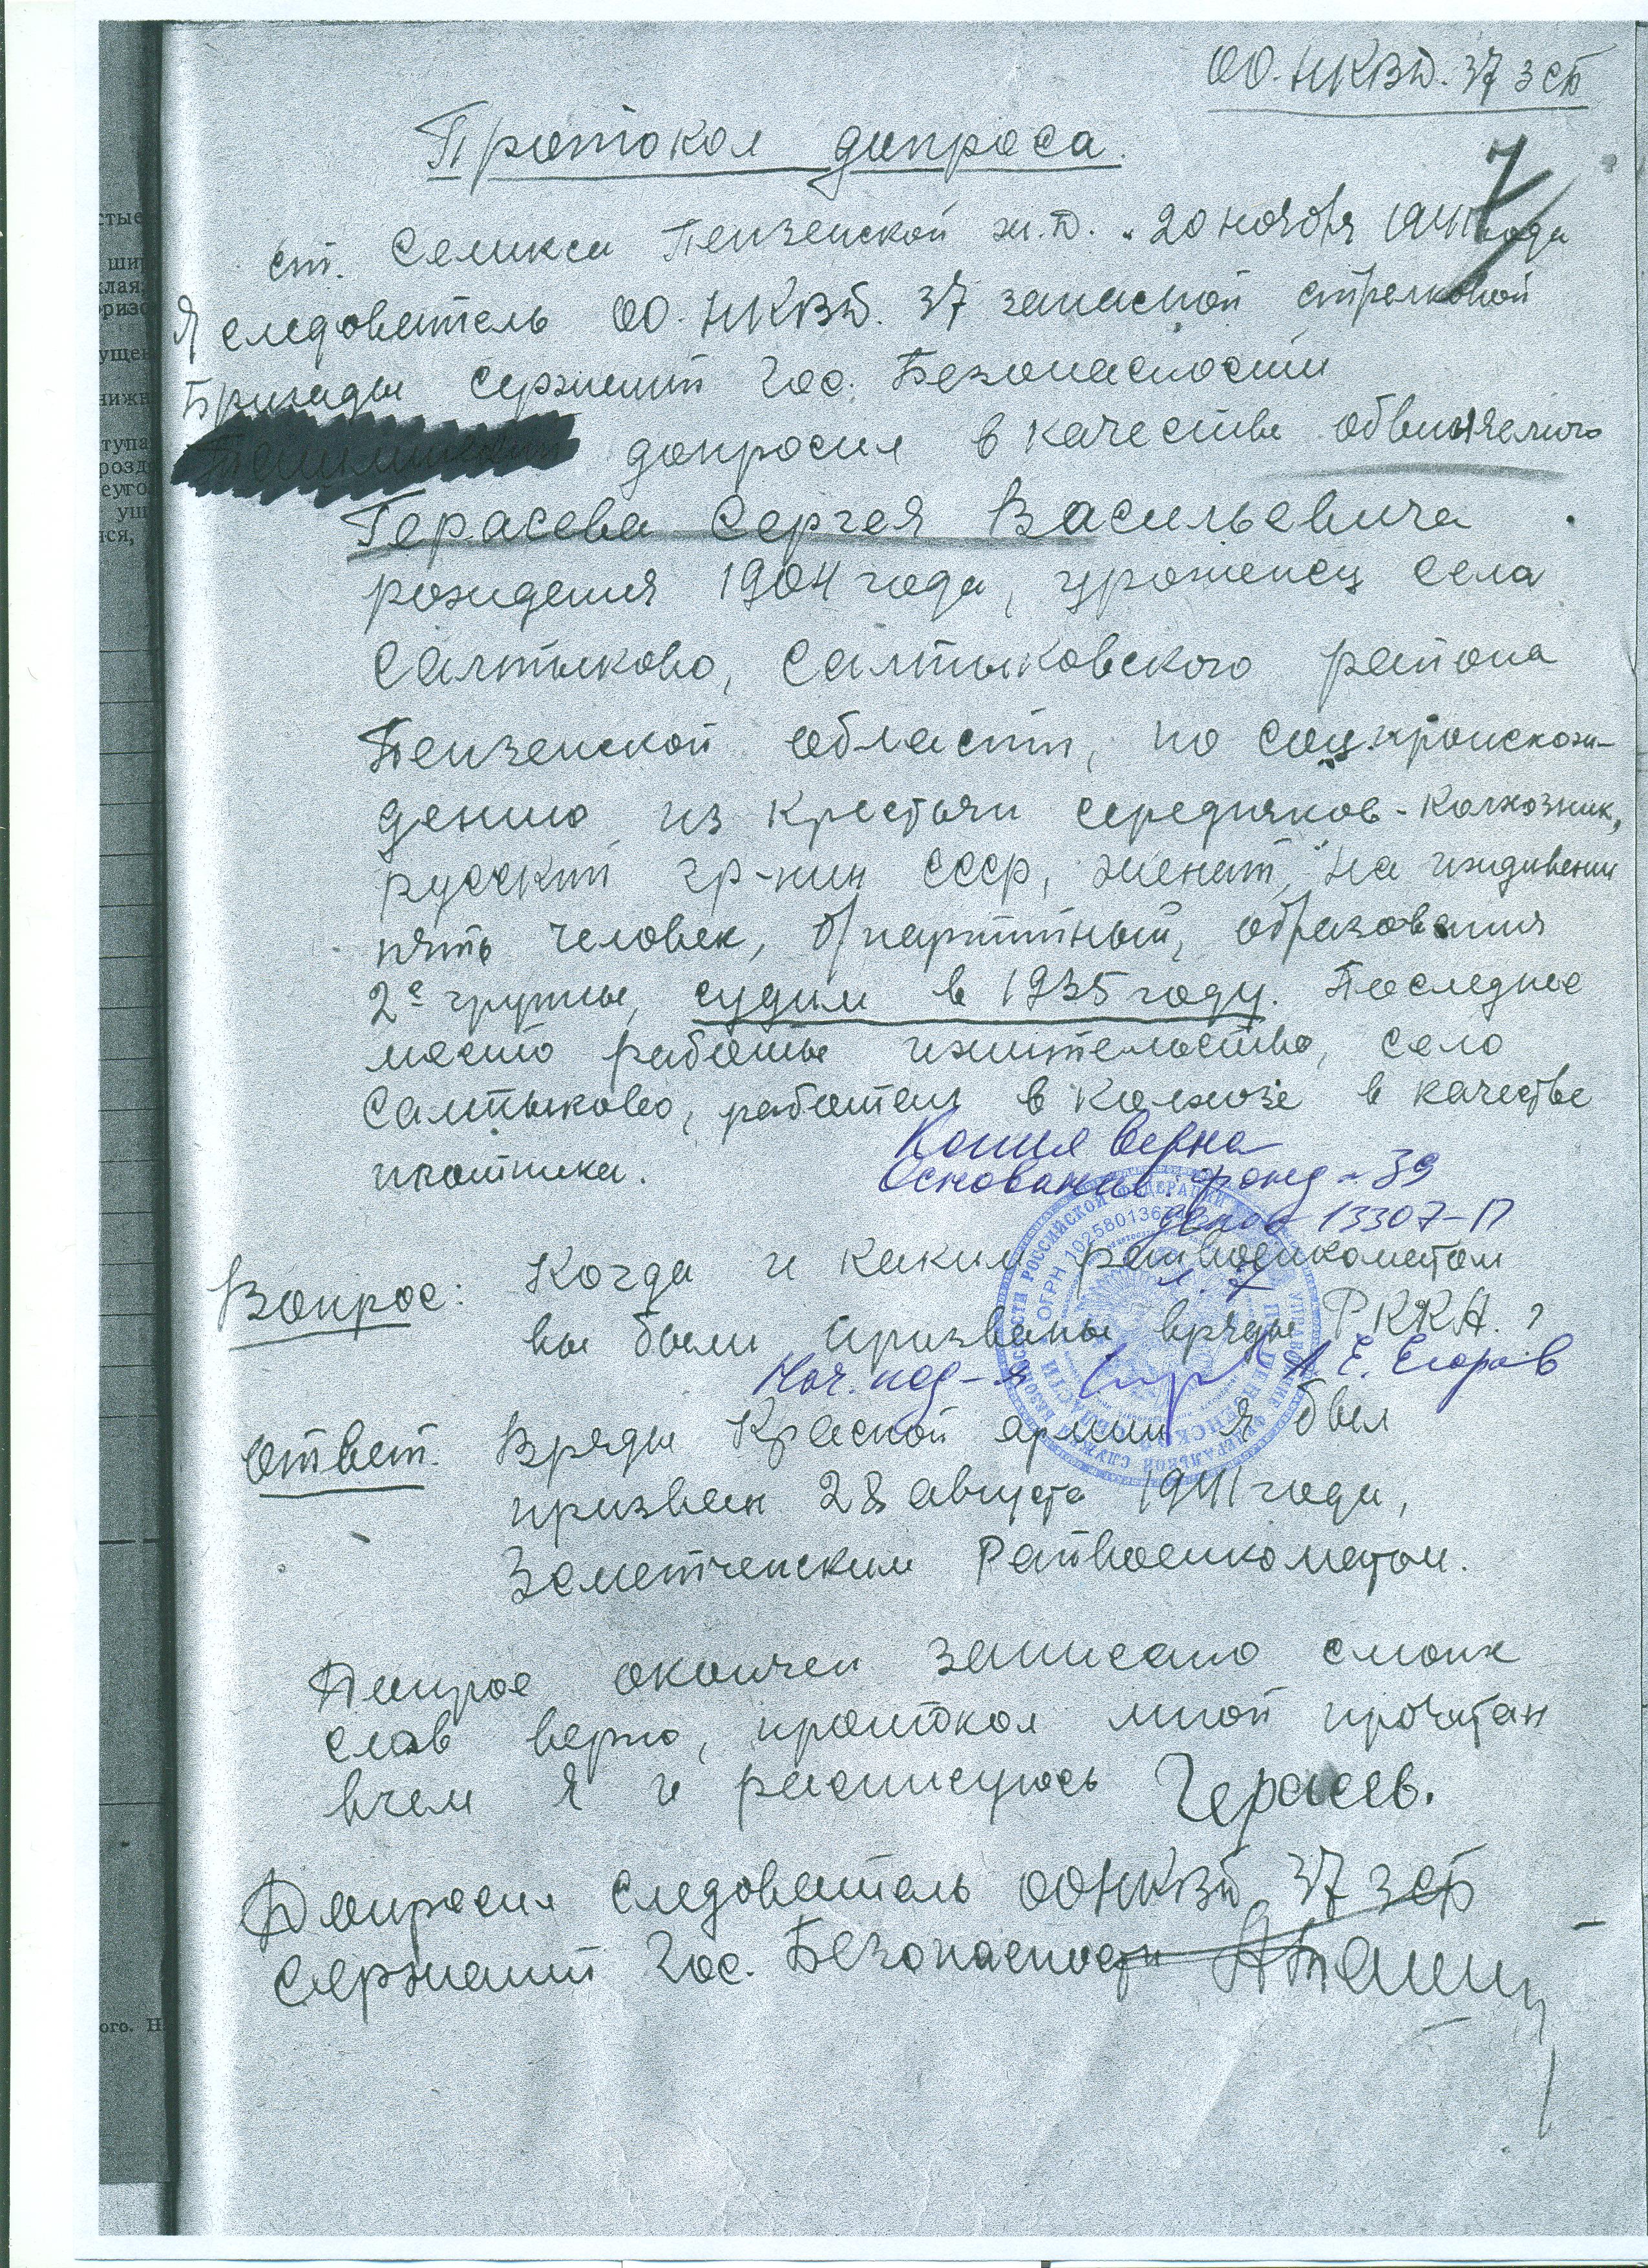 ОО. НКВД. 37 зсб
Протокол допроса.
7
ст. Селикса Пензенской ж.д. 20 ноября 1941 года
Я следователь ОО. НКВД. 37 запасной стрелковой
Бригады Сержант Гос. Безопасности
допросил в качестве обвиняемого
Герасева Сергея Васильевича
рождения 1904 года, уроженец села
Салтыково, Салтыковского района
Пензенской области, по соц.происхож-
дению из крестьян середняков - колхозник,
русский гр-нин СССР, женат, на иждивении
пять человек, б/партийный, образования
2е группы, судим в 1935 году. Последнее
место работы ижительства, село
Салтыково, работал в колхозе в качестве
плотника.
Копия верна
Основание: фонд - 39
дело 13307-П
л. 7
Вопрос: Когда и каким райвоенкоматом
вы были призваны вряды РККА. ?
Нач. под-я А. Е. Егоров
Ответ. Вряды Красной армии я был
призван 28 августа 1941 года,
Земетченским Райвоенкоматом.
Допрос окончен записано смоих
слов верно, протокол мной прочитан
вчем я и расписуюсь Герасев.
Допросил следователь ООНКВД 37 зсб
Сержант Гос. Безопасности